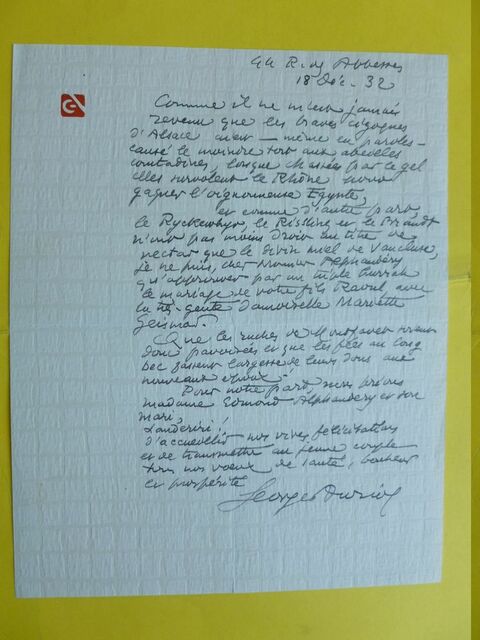 44 R. des Abbesses
18 Déc. 32
Comme il ne m'est jamais
revenu que les braves cigognes
d'Alsace aient – même en paroles –
causé le moindre tort aux abeilles
comtadines, lorsque chassées par le gel
elles survolent le Rhône pour
gagner l'oignonneuse Egypte,
et comme d'autre part,
le Ryckewhyr, le Riesling et le Brandt
n'ont pas moins droit au titre de
nectar que le divin miel de Vaucluse,
je ne puis, cher Alphandéry
qu'approuver par un triple hurrah
le mariage de votre fils Raoul avec
la très gente damoiselle Mariette
Geismar.
Que les ruches de Montfavet soient
donc pavoisées et que les fées au long
bec fassent largesse de leurs dons aux
nouveaux époux!
Pour notre part nous prions
madame Edmond Alphandéry et son
mari,
Landeriri!
d'accueillir nos vives félicitations
et de transmettre au jeune couple
tous nos vœux de santé, bonheur
et prospérité
Georges